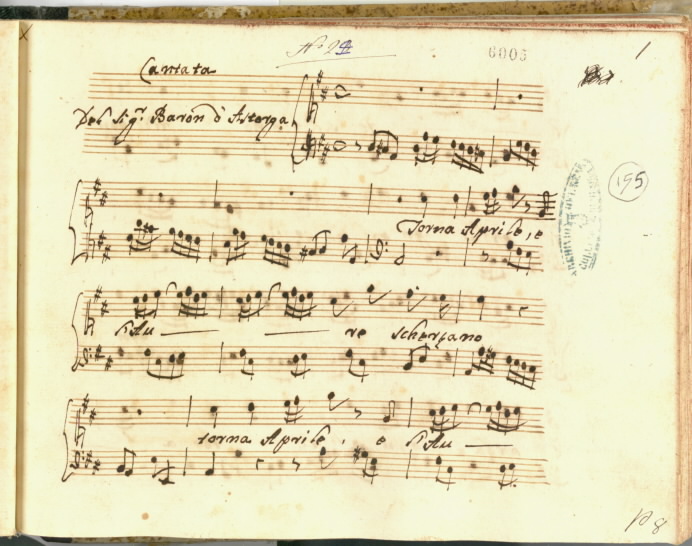 Nº 24
6005
1
Cantata
Del Sigr. Baron d'Astorga
195
Torna Aprile, e
l'Au re scherzano
torna Aprile, e l'Au